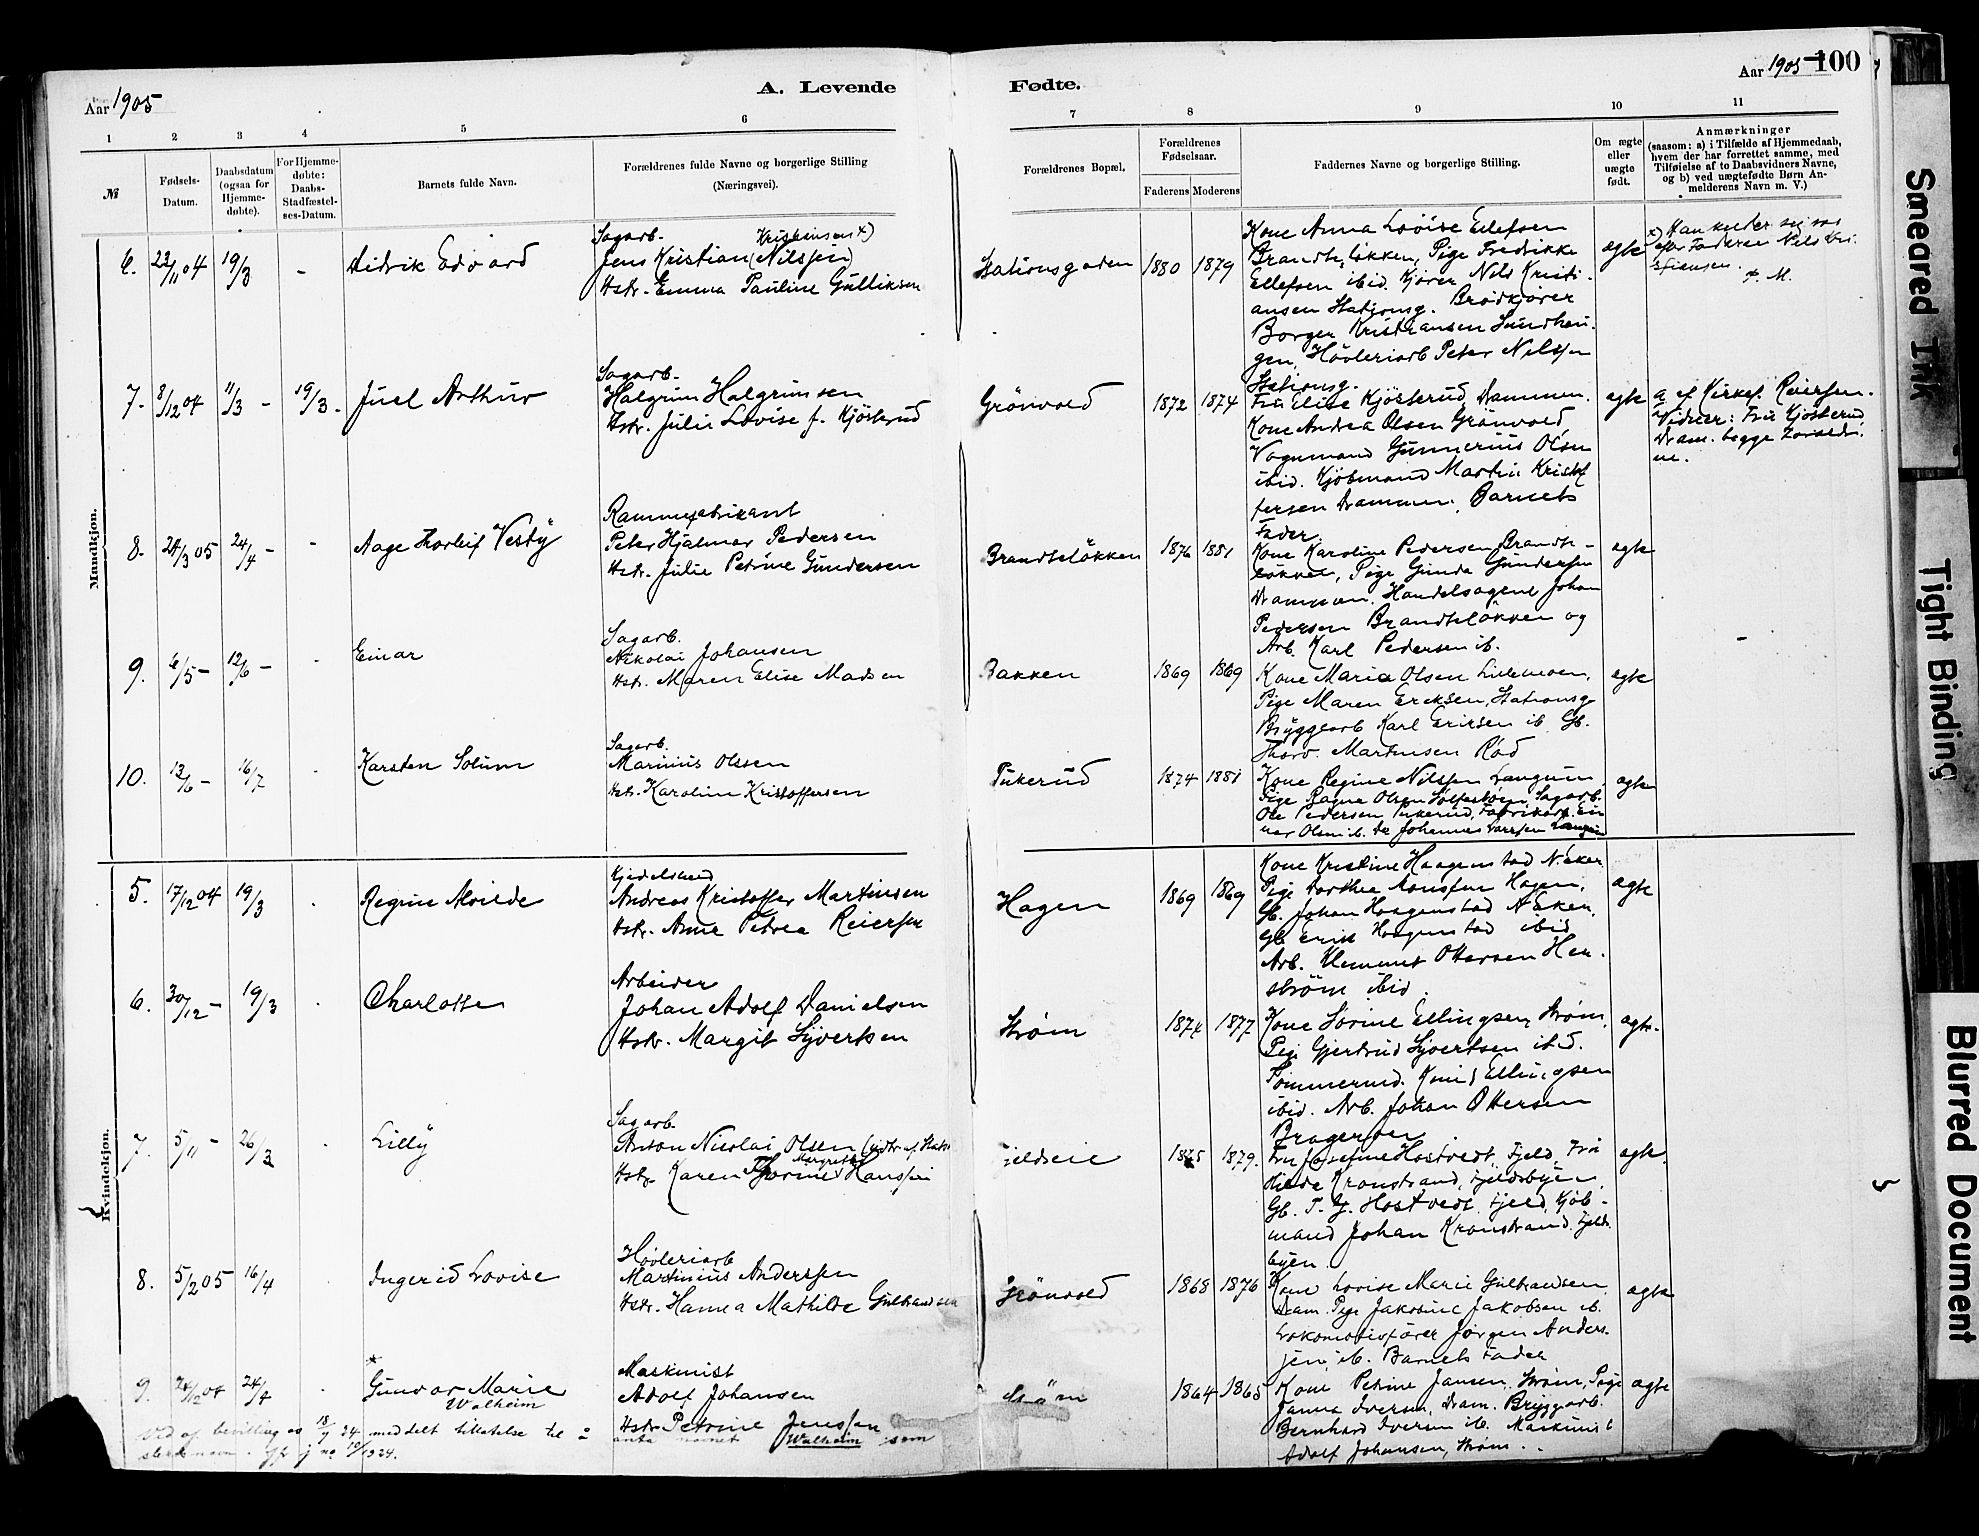 Aar 1905
A. Levende
Fødte.
Aar 1905
100
1 2 3 4 5 6 7 8 9 10 11
№
Fødsels-
Datum.
Daabsdatum
(ogsaa for
Hjemme-
døbte).
For Hjemme-
døbte:
Daabs-
Stadfæstel-
ses-Datum.
Barnets fulde Navn.
Forældrenes fulde Navne og borgerlige Stilling
(Næringsvei).
Forældrenes Bopæl,
Forældrenes
Fødselsaar.
Faderens Moderens
Faddernes Navne og borgerlige Stilling.
Om ægte
eller
uægte
født.
Anmærkninger
(saasom: a) i Tilfælde af Hjemmedaab,
hvem der har forrettet samme, med
Tilføielse af to Daabsvidners Navne,
og b) ved uægtefødte Børn An-
melderens Navn m. V.)
Mandkjøn.
6. 23/11 04 19/3 - Didrik Edvard
Sagarb. Kristiansen x)
Jens Kristian (Nilssen)
Hstr. Emma Pauline Gulliksen
Stationsgaden 1880 1879
Kone Anna Lovise Ellefsen
Brandtsløkken, Pige Fredrikke
Ellefsen ibid. Kjører Nils Kristi-
ansen Stationsg. Brødkjører
Borger Kristiansen Sundhau-
gen, Høvleriarb Peter Nilssen
Stationsg.
ægte
x) Han kalder sig
efter Faderen Nils Kri-
stiansen.
7. 8/12 04 11/3 - 19/3 - Juel Arthur
Sagarb.
Halgrim Halgrimsen
Hstr. Julie Lovise f. Kjøsterud
Grönvold 1872 1874
Fru Elise Kjösterud, Drammen.
Kone Andrea Olsen Grönvold
Vognmand Gunnerius Olsen
ibid. Kjöbmand Martin Kristof
fersen Drammen, Barnets
Fader.
ægte
a af Kirkes. Reiersen.
Vidner: Fru Kjösterud
Dram. begge Foreldre-
ne.
8. 24/3 05 24/4 - - Aage Thorleif Vestby
Rammefabrikant
Peter Hjalmar Pedersen
Hstr. Julie Petrine Gundersen
Brandtsløkken 1876 1881
Kone Karoline Pedersen Brandts-
løkken, Pige Gunda Gundersen
Drammen. Handelsagent Johan
Pedersen Brandtsløkken og
Arb. Karl Pedersen ib.
ægte
9. 6/5 - 12/6 - - Einar
Sagarb.
Nikolai Johansen
Hstr. Maren Elise Madsen
Bakken 1869 1869
Kone Maria Olsen Lillemoen,
Pige Maren Ericksen, Stationsg
Bryggearb Karl Eriksen ib. Gb.
Thorv. Martinsen Rød
ægte
10. 13/6 - 16/7 - Karsten Solum
Sagarb.
Marinius Olssen
Hstr. Karoline Kristoffersen
Tukerud 1874 1881
Kone Regine Nilssen Langum
Pige Ragna Olsen Solfestøen, Sagarb.
Ole Pedersen Tukerud, Fabrikarb. Ei
nar Olsen ib. Johannes Larssen Langum
ægte
Kvindekjøn.
5. 17/12 04 19/3 - Regine Alvilde
Kjedelsmed
Andreas Kristoffer Martinsen
Hstr. Anne Petrea Reiersen
Hagen 1869 1869
Kone Kristine Haagenstad N. Aker
Pige Dorthea Aonssen Hagen,
Gb. Johan Haagenstad N. Aker,
Gb Erik Haagenstad ibid
Arb. Klemmet Ottersen Her-
strøm ibid.
ægte
6. 30/12 - 19/3 - Charlotte
Arbeider
Johan Adolf Danielsen
Hstr. Margit Syvertsen
Strøm 1874 1877
Kone Sorine Ellingsen Strøm,
Pige Gjertrud Syvertsen ibid.
Tömmermd. Knud Ellingsen
ibid. Arb. Johan Ottersen
Bragerøen
ægte.
7. 5/11 - 26/3 - Lilly
Sagarb.
Anton Nicolai Olsen
Hstr. Karen Thorine Margrethe Hanssen
Fjeldseie 1875 1879.
Fru Josefine Hostvedt, Fjeld, Fru
Hilda Kronstrand, Fjeldsbyen
Gb. T. G. Hostvedt, Fjeld, Kjöb-
mand Johan Kronstrand, Fjelds
byen.
ægte.
8. 5/2 05 16/4 Ingerid Lovise
Høvleriarb
Martinius Anderssen
Hstr. Hanna Mathilde Gulbrandsen
Grönvold 1868 1876
Kone Lovise Marie Gulbrandsen
Dram. Pige Jakobine Jakobsen ib.
Lokomotivfører Jørgen Anders-
sen, ib. Barnets Fader
ægte
9. 24/12 04 24/4 - Gunvor Marie
Walheim
Maskinist
Adolf Johansen
Hstr. Petrine Jenssen
Strøm 1864 1865
Kone Petrine Jansen, Strøm, Pige
Janna Iversen, Dram. Bryggarb.
Bernhard Iversen ib. Maskinist
Adolf Johansen, Strøm.
ægte
Ved af bevilling av 18/7 24 meddelt tillatelse til å anta navnet Walheim som
slektsnavn. j no 10/1924.
Smeared Ink
Tight Binding
Blurred Document